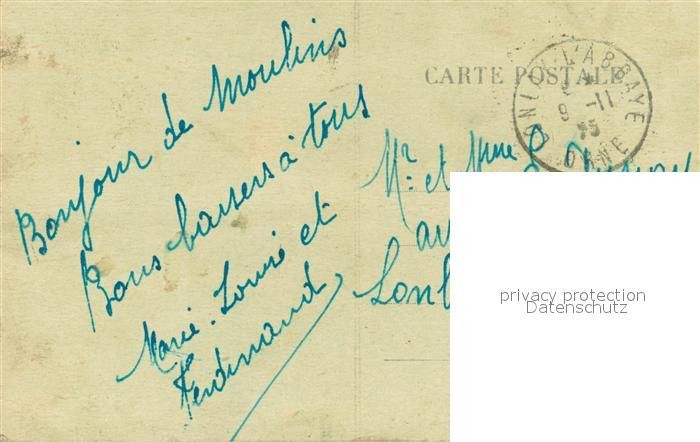 Bonjour de Moulins
Bons baisers à tous
Marie-Louise et
Ferdinand
CARTE POSTALE
LONLAY-L'ABBAYE
9 -11
25
ORNE
Mr. et Mme
au
Lonl
privacy protection
Datenschutz